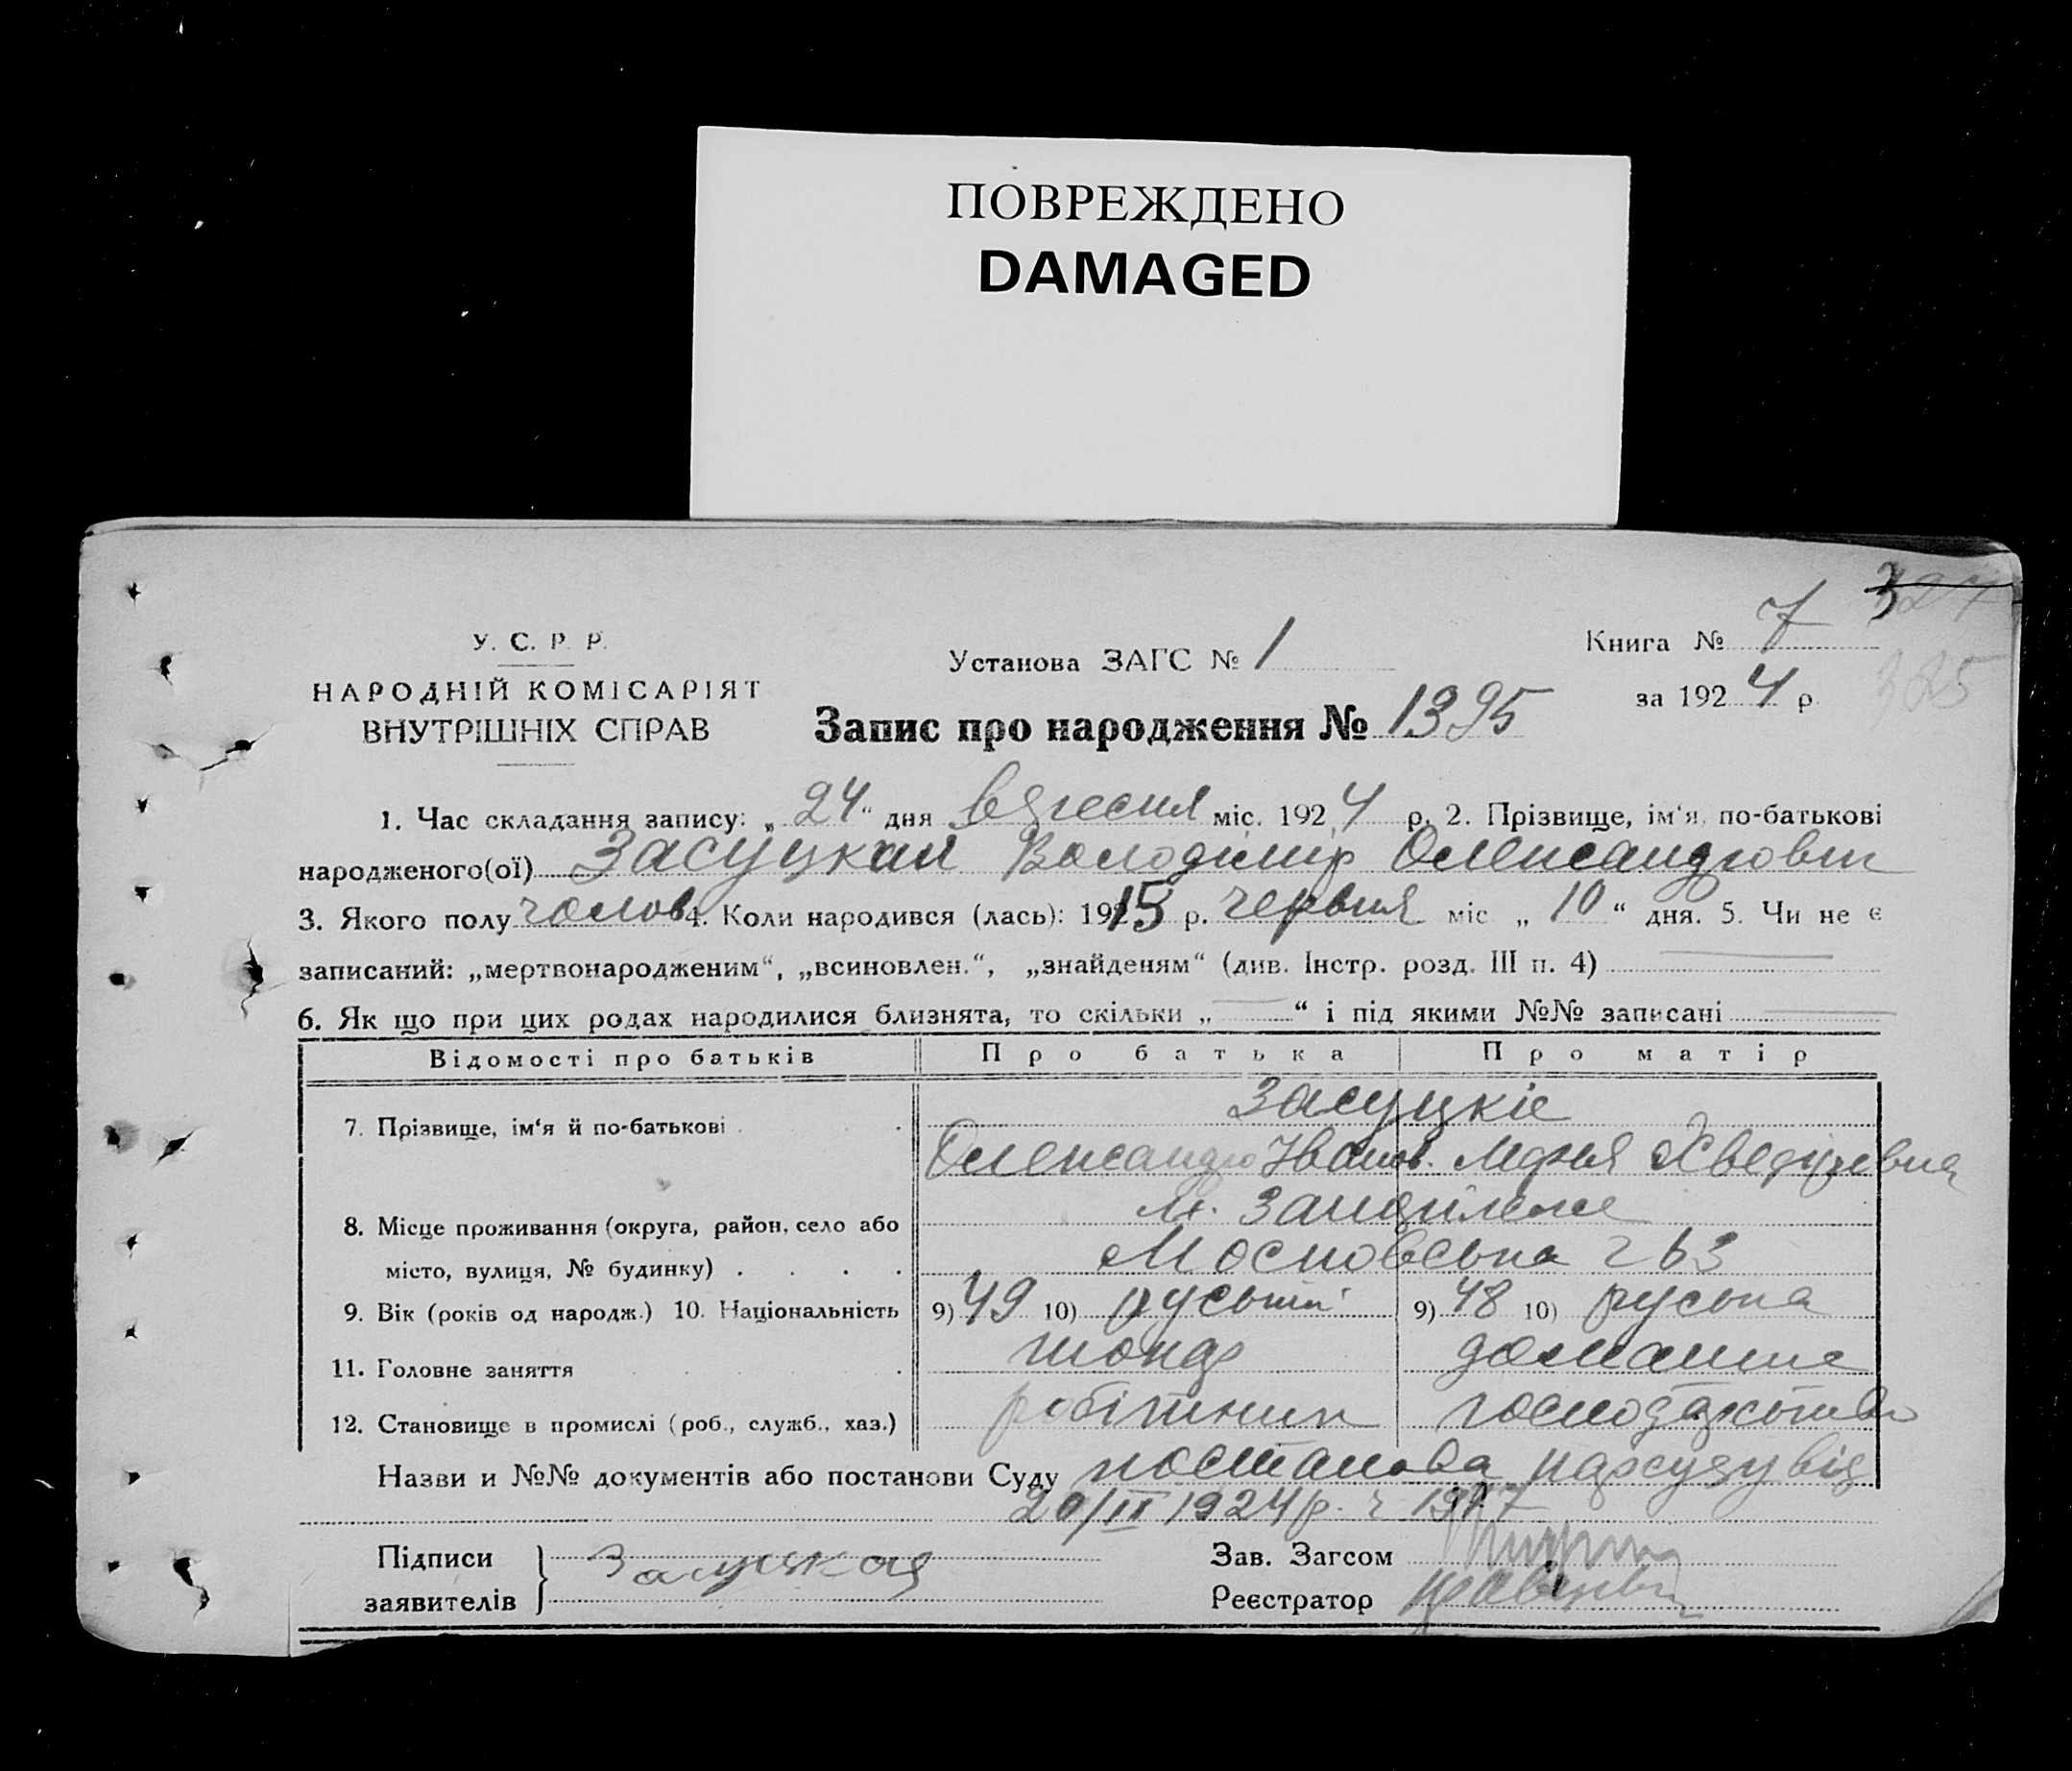 ПОВРЕЖДЕНО
DAMAGED
У. С. Р. Р.
НАРОДНІЙ КОМІСАРІЯТ
ВНУТРІШНІХ СПРАВ
Установа ЗАГС № 1
Запис про народження № 1395
Книга № 7
за 1924 р
325
1. Час складання запису: „24“ дня вересня міс. 1924 р. 2. Прізвище, ім‘я, по-батькові
народженого(ої) Засуцкий Володімір Олександрович
3. Якого полу чолов 4. Коли народився (лась): 1915 р. червня міс „10“ дня. 5. Чи не є
записаний: „мертвонародженим“, „всиновлен.“, „знайденям“ (див. Інстр. розд. III п. 4)
6. Як що при цих родах народилися близнята, то скільки „ “ і під якими №№ записані
Відомості про батьків Про батька Про матір
7. Прізвище, ім‘я й по-батькові Засуцкіе
Олександр Іванов. Марья Хведоревна
8. Місце проживання (округа, район, село або м. Запоріжже
місто, вулиця, № будинку) Московська 263
9. Вік (років од народж.) 10. Національність 9) 49 10) руський 9) 48 10) руська
11. Головне заняття токар домашне
12. Становище в промислі (роб., служб., хаз.) робітник господарство
Назви и №№ документів або постанови Суду постанова нарсуду від
1924 р.
Підписи заявителів Засуцкая
Зав. Загсом
Реєстратор